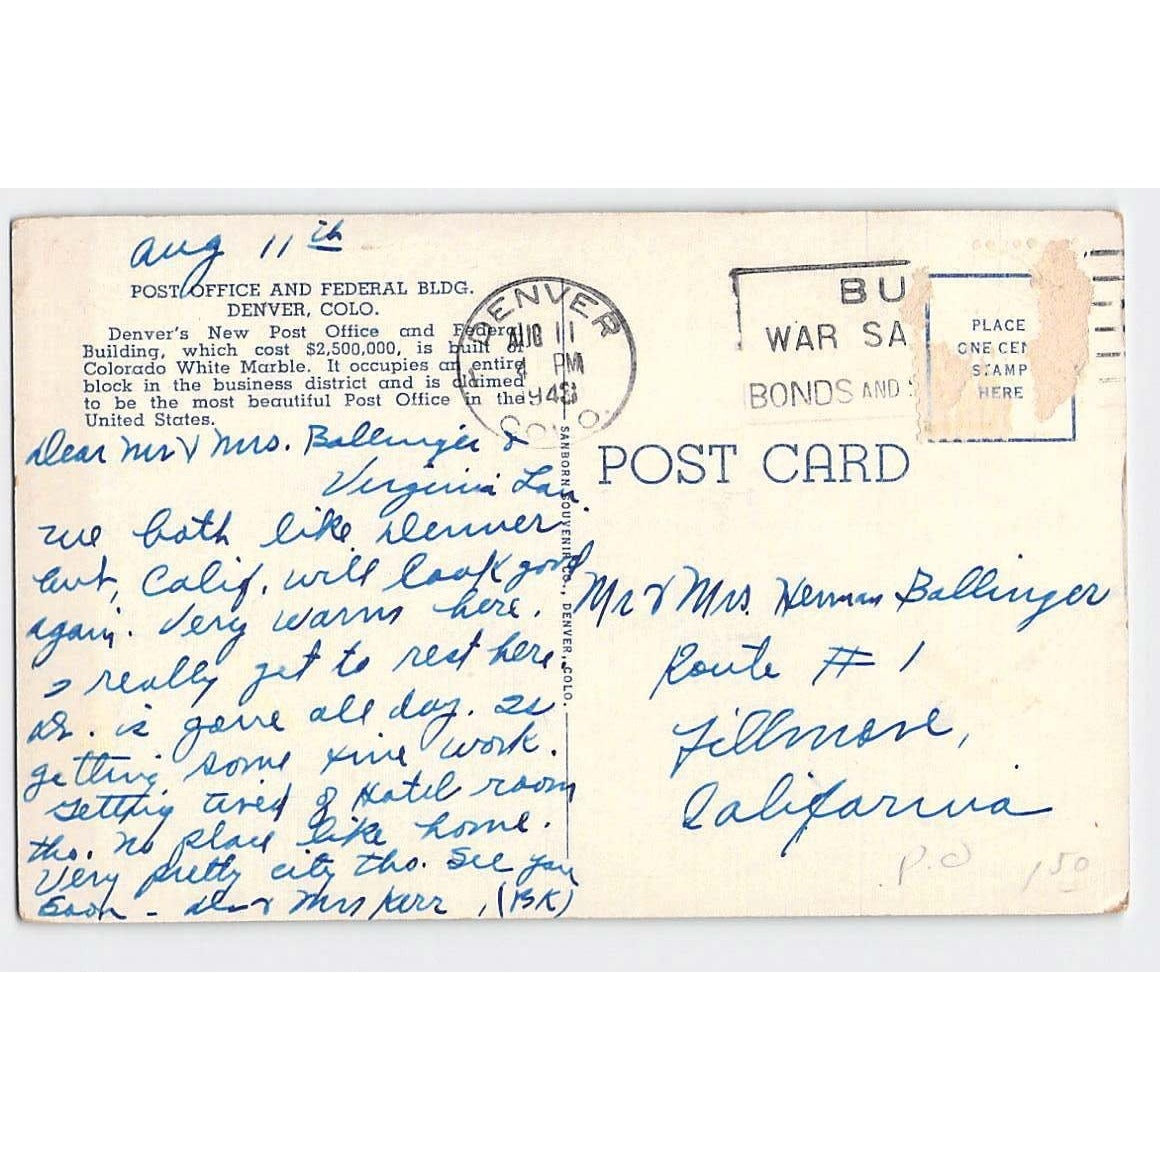 Aug 11th
POST OFFICE AND FEDERAL BLDG.
DENVER, COLO.
Denver's New Post Office and Federal
Building, which cost $2,500,000, is built of
Colorado White Marble. It occupies an entire
block in the business district and is claimed
to be the most beautiful Post Office in the
United States.
Dear Mr & Mrs. Ballinger &
Virginia Lou
We both like Denver
but, Calif. will look good
again. Very warm here.
I really get to rest here
Dr. is gone all day. Is
getting some fine work.
Getting tired of Hotel room
tho. No place like home.
Very pretty city tho. See you
Soon - Dr & Mrs Kerr, (BK)
DENVER
AUG 11
PM
COLO.
BU
WAR SA
BONDS AND S
PLACE
ONE CEN
STAMP
HERE
SANBORN SOUVENIR CO., DENVER, COLO.
POST CARD
Mr & Mrs. Herman Ballinger
Route # 1
Fillmore,
California
P.O
1.50